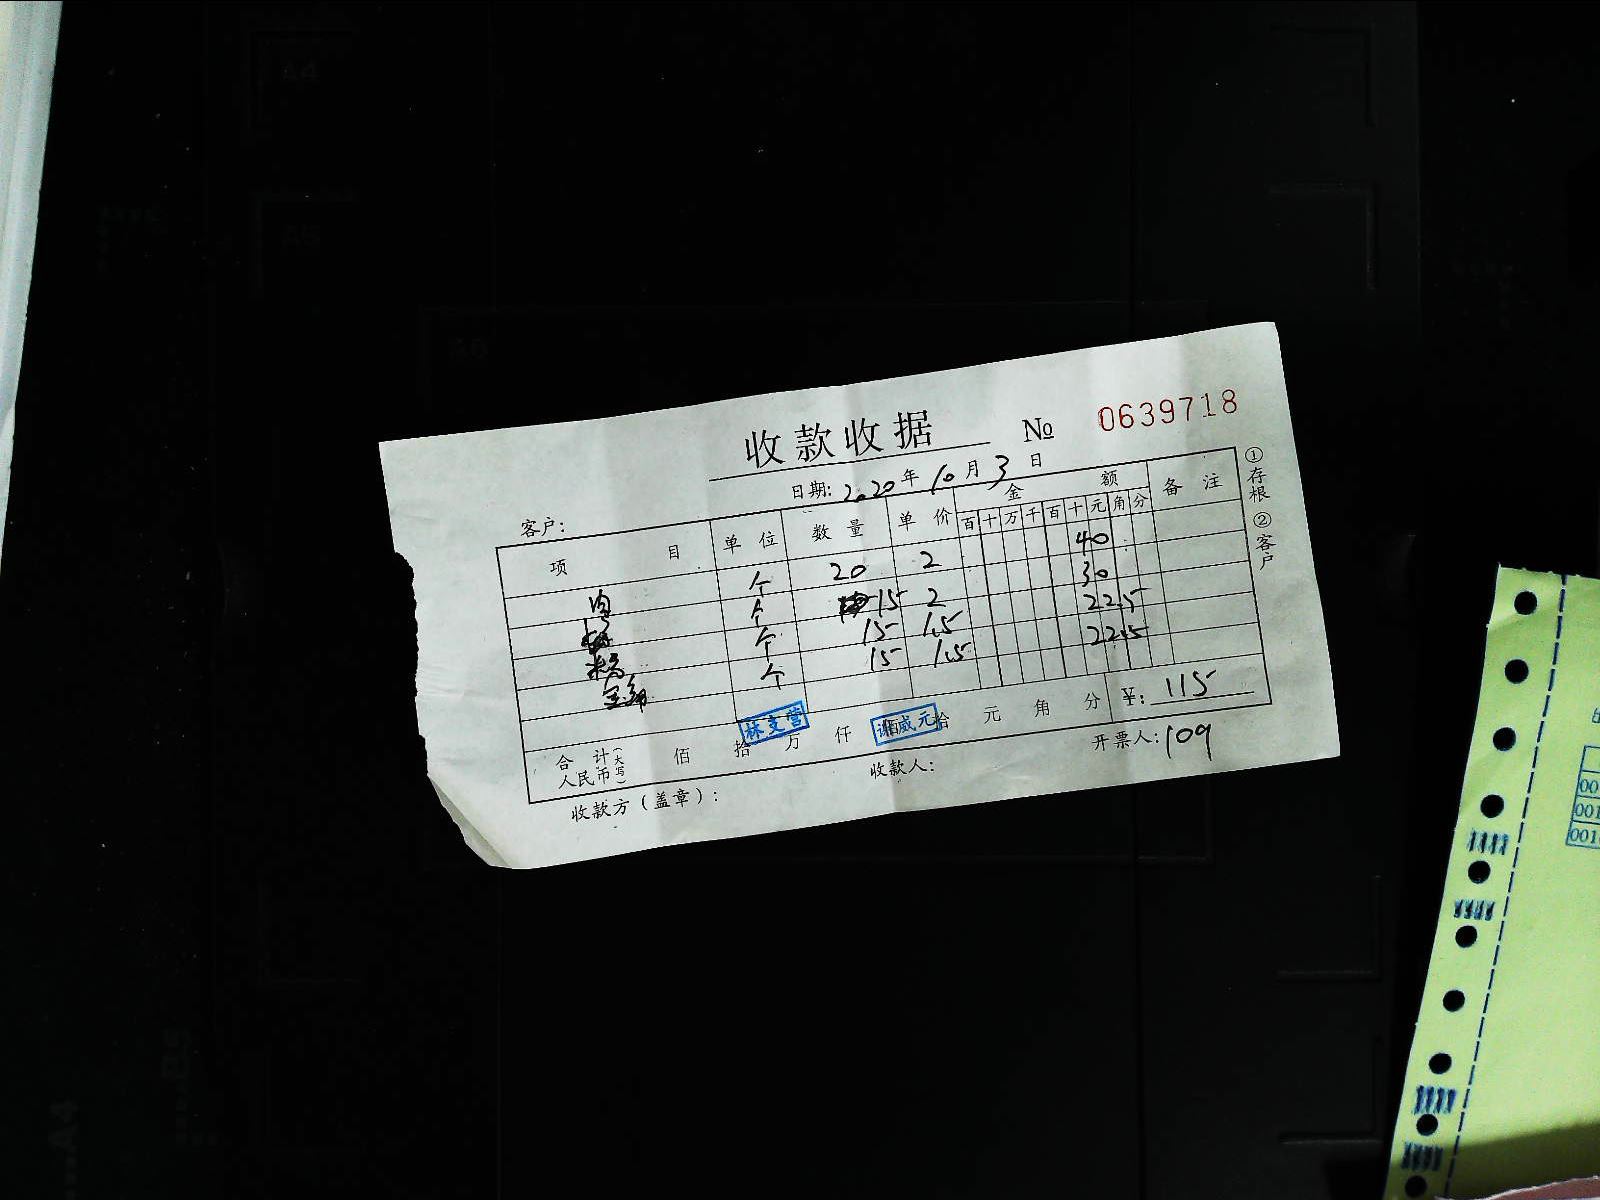 收款收据 № 0639718
日期: 2020 年 10 月 3 日
客户:
项 目 单位 数量 单价 金额 备注
百 十 万 千 百 十 元 角 分
个 20 2 40
个 15 2 30
个 15 1.5 22.5
个 15 1.5 22.5
合计 人民币 (大写) 佰 拾 万 仟 佰 拾 元 角 分 ¥: 115
林支营
谢威元
收款方(盖章): 收款人: 开票人: 109
①存根 ②客户
A4
A5
001